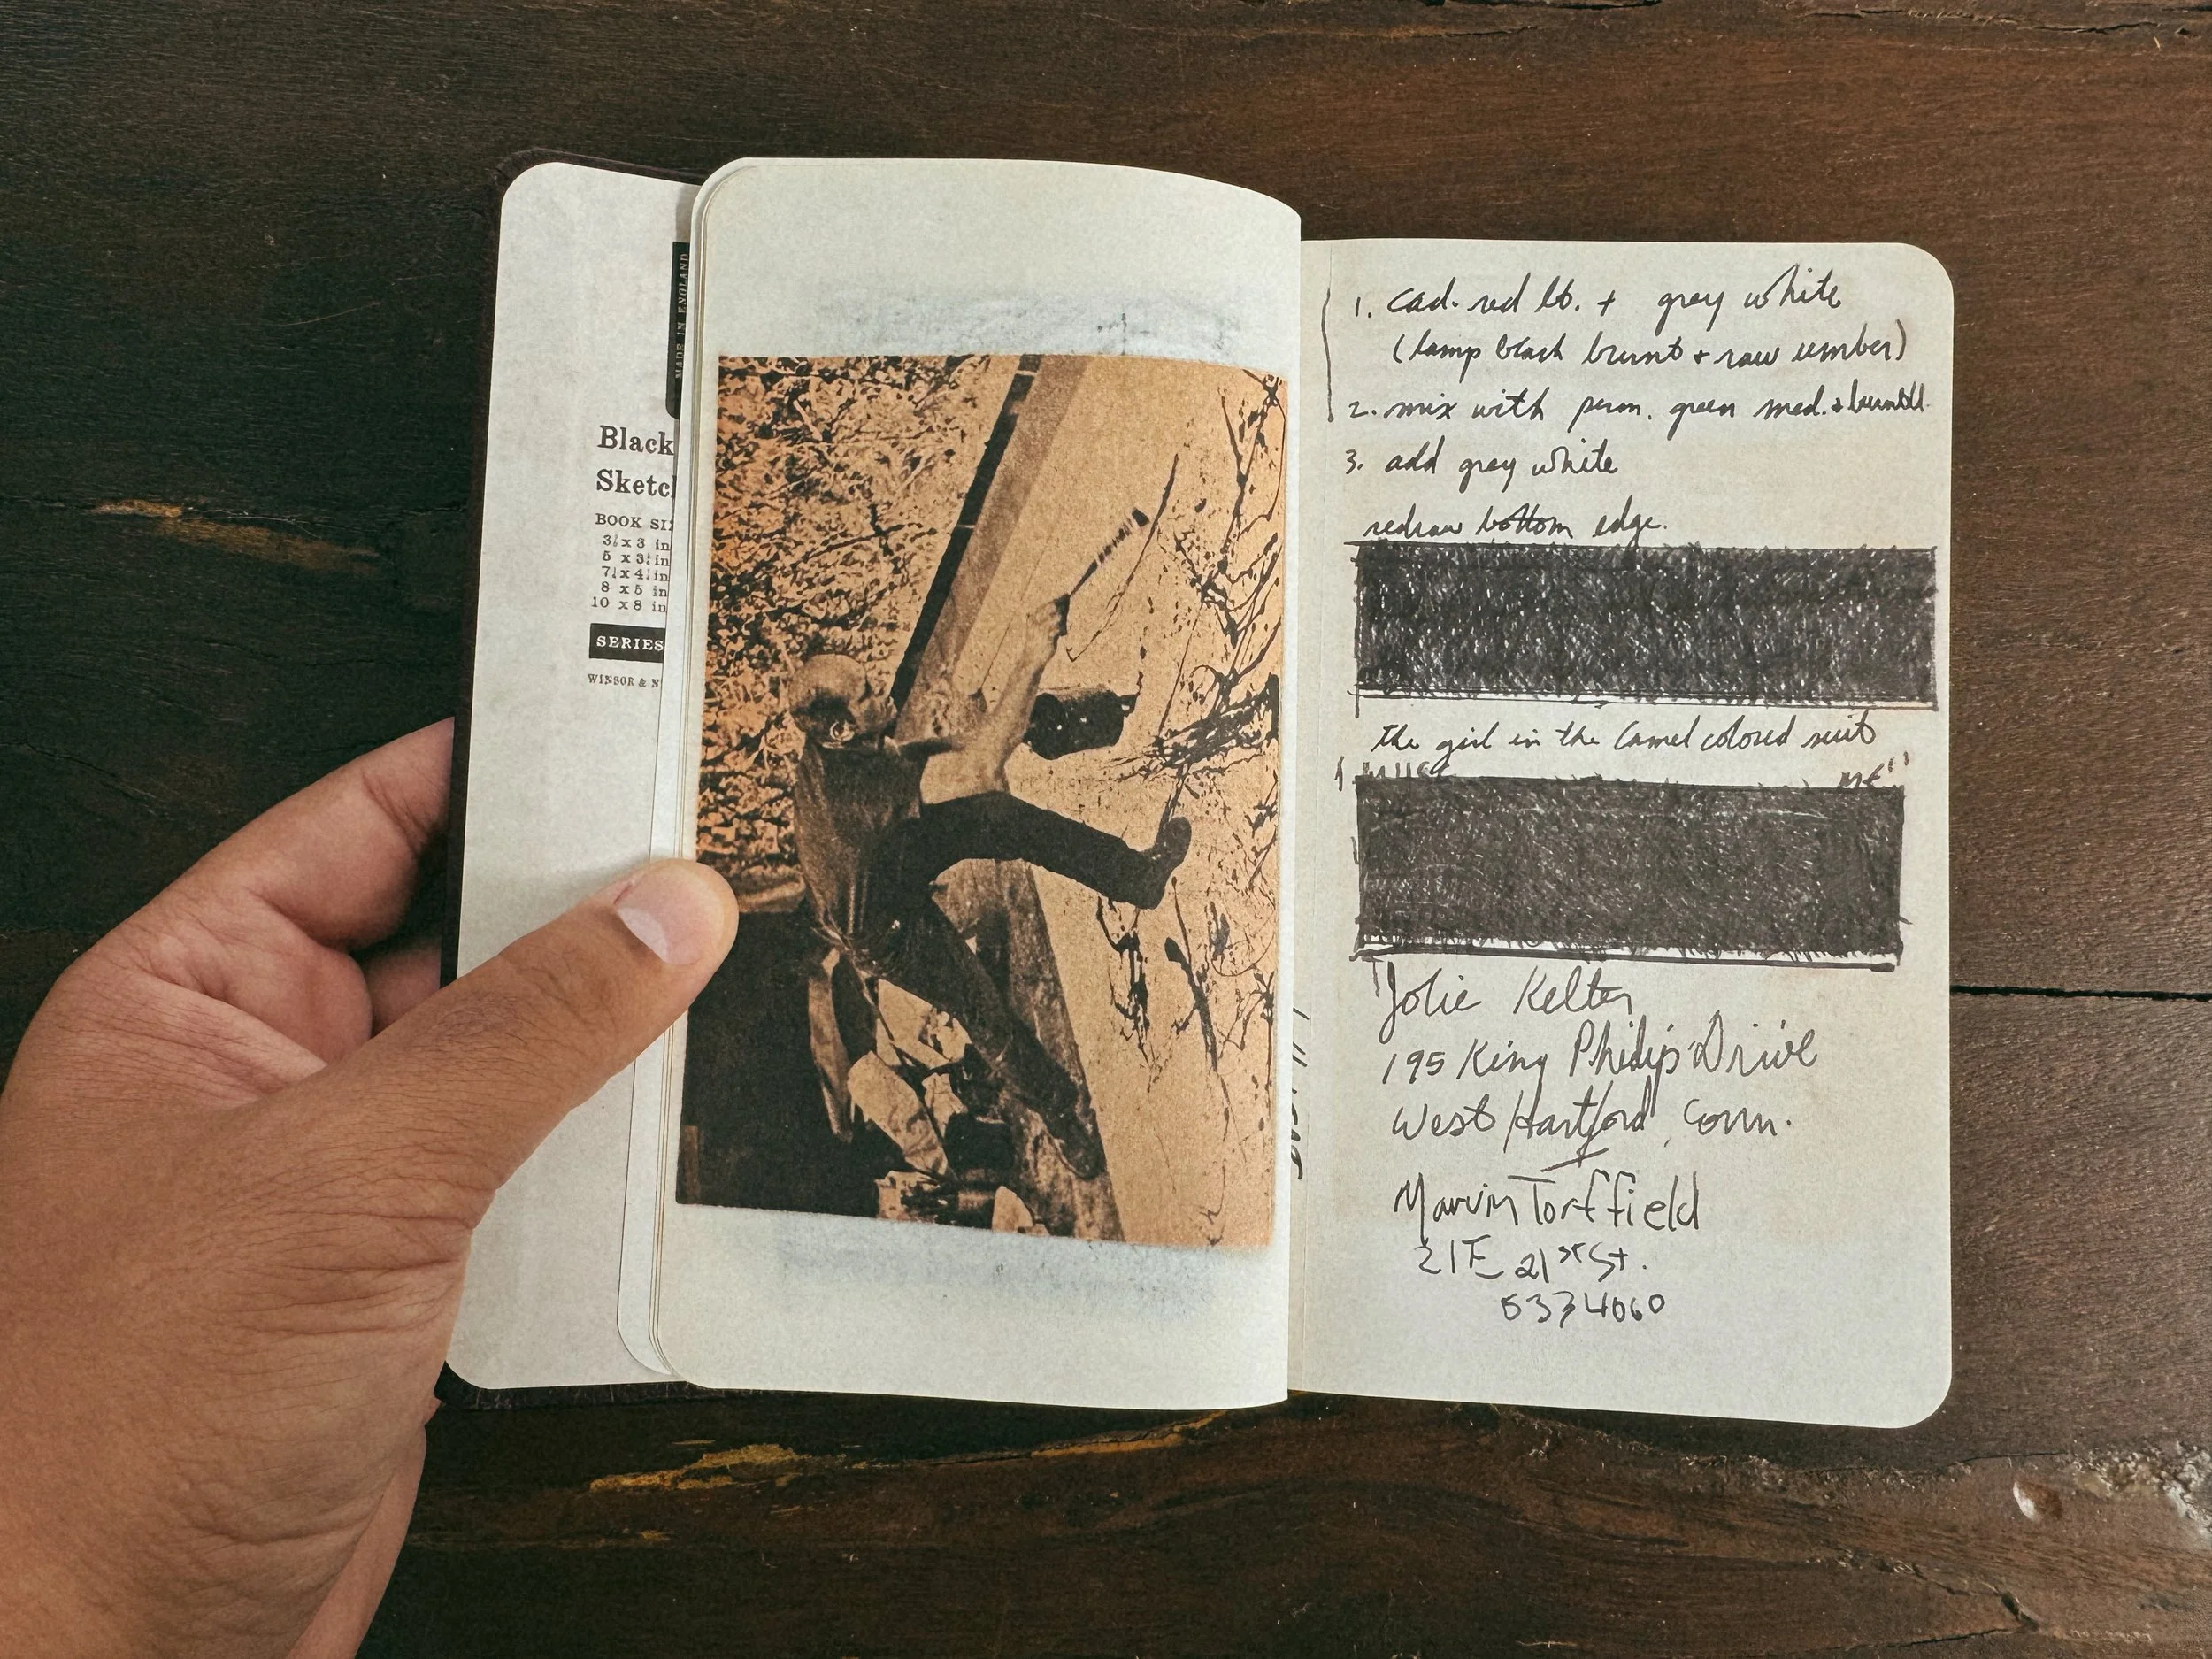 MADE IN ENGLAND
Black
Sketch
BOOK SI
3½ x 3 in
5 x 3½ in
7½ x 4½ in
8 x 5 in
10 x 8 in
SERIES
WINSOR & N
1. cad. red lt. + grey white
(lamp black burnt + raw umber)
2. mix with perm. green med. +
3. add grey white
redraw bottom edge.
the girl in the Camel colored suit
ME"
Jolie Kelter
195 King Philip Drive
West Hartford, Conn.
Marvin Torffield
21 E 21st St.
5334060